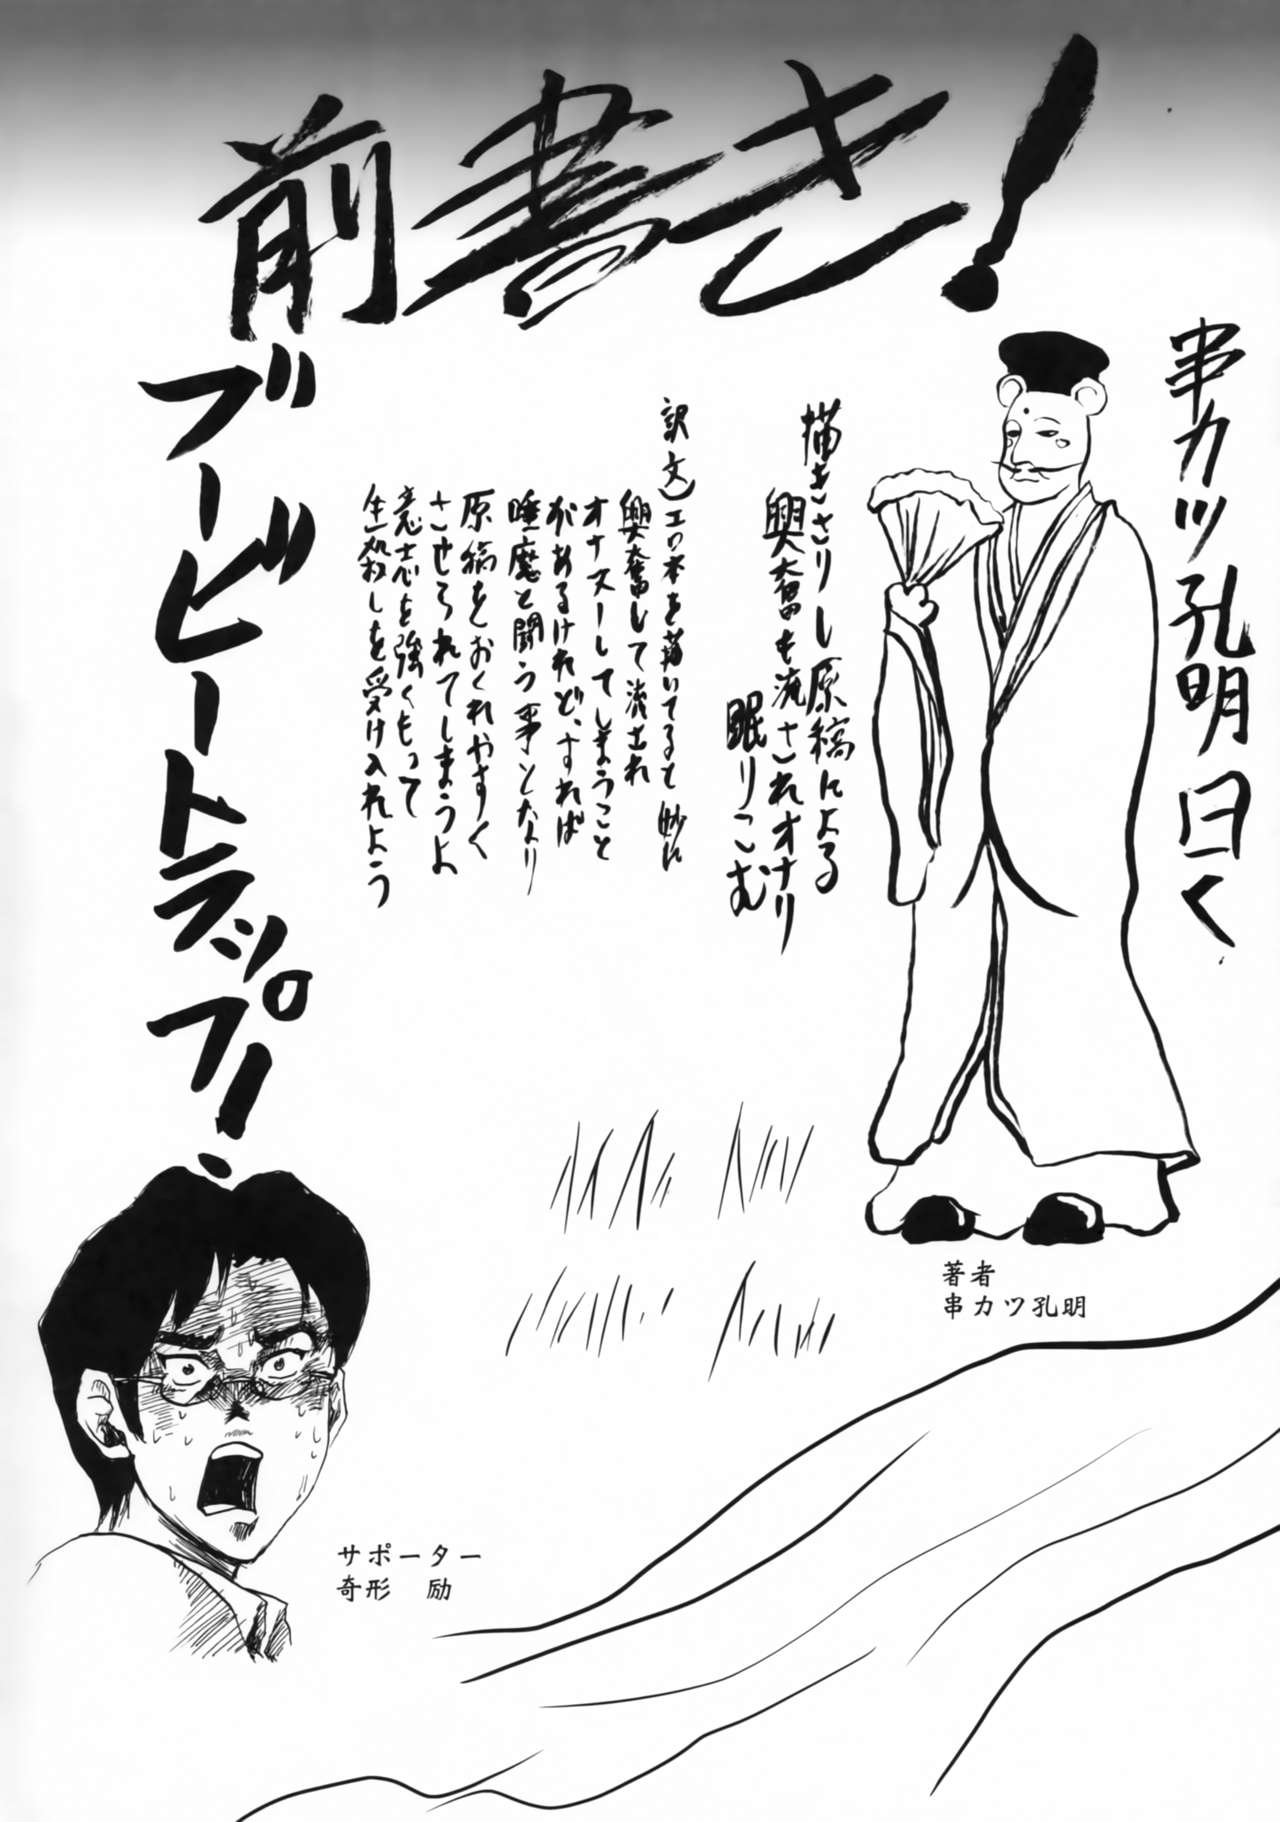 前書き!
串カツ孔明曰く
描きさりし原稿による
興奮も流されオナリ
眠りこむ
訳文)エロ本を描いてると妙に
興奮して流され
オナヌーしてしまうこと
があるけれど、すれば
睡魔と闘う事となり
原稿をおくれやすく
させられてしまうよ
意志を強くもって
生殺しを受け入れよう
ブービートラップ!
著者
串カツ孔明
サポーター
奇形 励